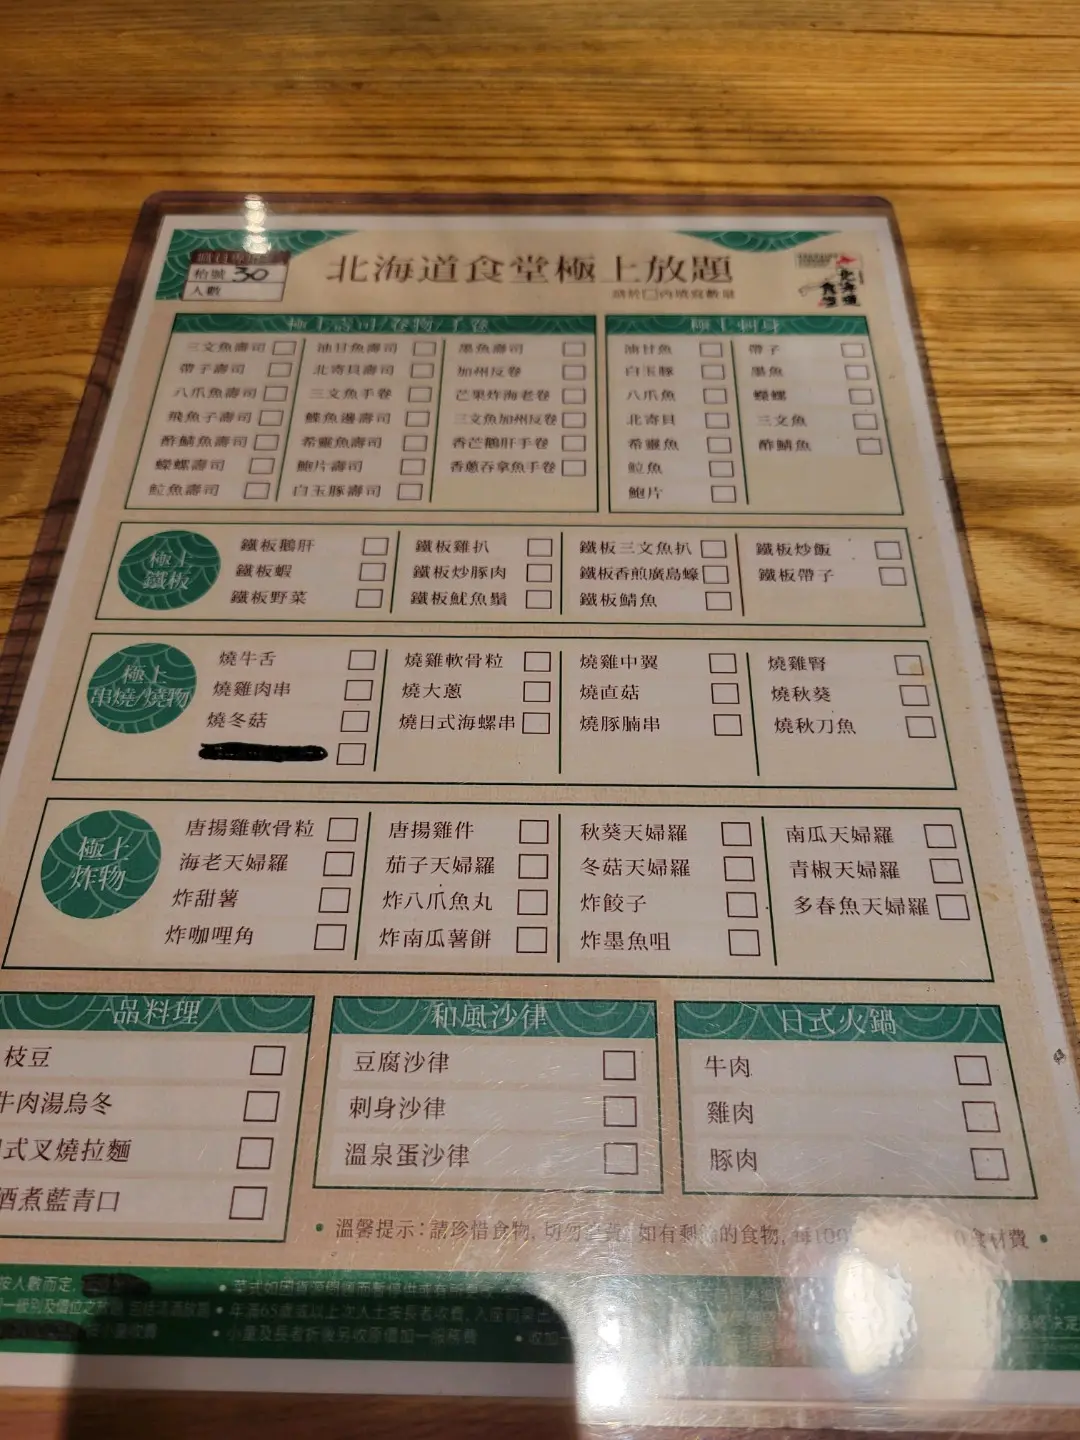 北海道食堂極上放題
枱號 30
人數
請於□內填寫數量
北海道食堂
極上壽司/卷物/手卷
三文魚壽司
帶子壽司
八爪魚壽司
飛魚子壽司
醋鯖魚壽司
蠑螺壽司
魟魚壽司
油甘魚壽司
北寄貝壽司
三文魚手卷
鰈魚邊壽司
希靈魚壽司
鮑片壽司
白玉豚壽司
墨魚壽司
加州反卷
芒果炸海老卷
三文魚加州反卷
香芒鵝肝手卷
香蔥吞拿魚手卷
極上刺身
油甘魚
白玉豚
八爪魚
北寄貝
希靈魚
魟魚
鮑片
帶子
墨魚
蠑螺
三文魚
醋鯖魚
極上
鐵板
鐵板鵝肝
鐵板蝦
鐵板野菜
鐵板雞扒
鐵板炒豚肉
鐵板魷魚鬚
鐵板三文魚扒
鐵板香煎廣島蠔
鐵板鯖魚
鐵板炒飯
鐵板帶子
極上
串燒/燒物
燒牛舌
燒雞肉串
燒冬菇
燒雞軟骨粒
燒大蔥
燒日式海螺串
燒雞中翼
燒直菇
燒豚腩串
燒雞腎
燒秋葵
燒秋刀魚
極上
炸物
唐揚雞軟骨粒
海老天婦羅
炸甜薯
炸咖哩角
唐揚雞件
茄子天婦羅
炸八爪魚丸
炸南瓜薯餅
秋葵天婦羅
冬菇天婦羅
炸餃子
炸墨魚咀
南瓜天婦羅
青椒天婦羅
多春魚天婦羅
一品料理
枝豆
牛肉湯烏冬
式叉燒拉麵
酒煮藍青口
和風沙律
豆腐沙律
刺身沙律
溫泉蛋沙律
日式火鍋
牛肉
雞肉
豚肉
• 溫馨提示：請珍惜食物, 切勿 費, 如有剩 的食物, 每100 食材費 •
按人數而定,
一級別及價位之
按小童收費
• 菜式如因貨源問題而暫停供應
• 年滿65歲或以上次人士按長者收費,
• 小童及長者折後另收原價加一服務費
• 收加一